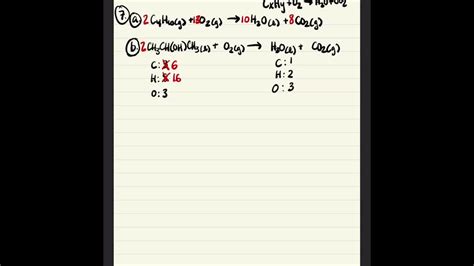 CxHy + O2 → H2O + CO2
7. a) 2C4H10(g) + 13O2(g) → 10H2O(l) + 8CO2(g)
b) 2CH3CH(OH)CH3(l) + O2(g) → H2O(l) + CO2(g)
C: 3 6 C: 1
H: 8 16 H: 2
O: 3 O: 3